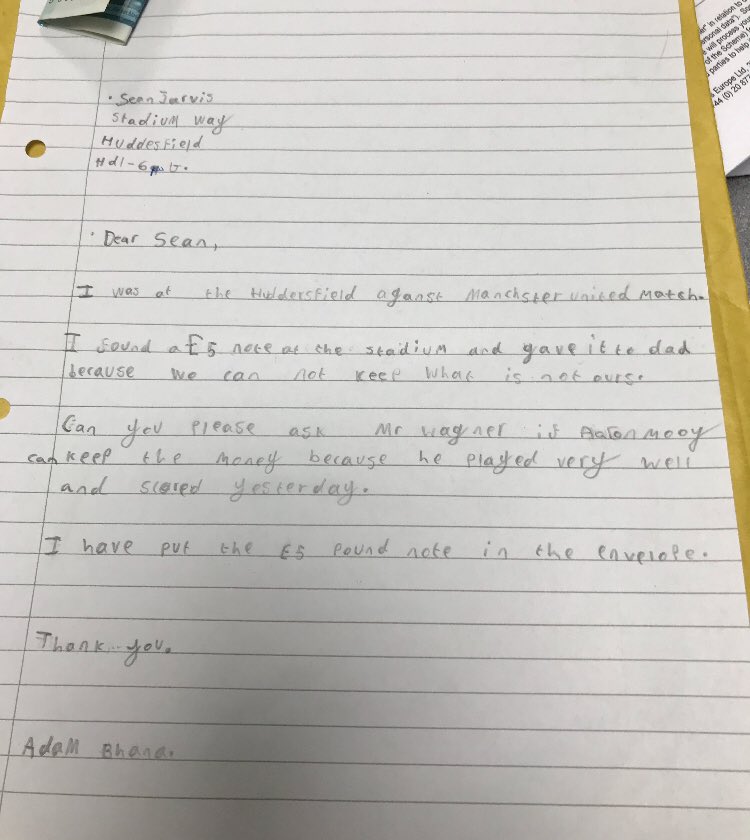 Sean Jarvis
Stadium way
Huddesfield
Hd1-6
Dear Sean,
I was at the Huddersfield aganst Manchster united match.
I found a £5 note at the stadium and gave it to dad
because we can not keep what is not ours.
Can you please ask Mr wagner if Aaron mooy
can keep the money because he played very well
and scored yesterday.
I have put the £5 pound note in the envelope.
Thank you.
Adam Bhana.
" in relation to
personal data"). So
will process you
of the Scheme)
parties to help
Europe Ltd,
44 (0) 20 87